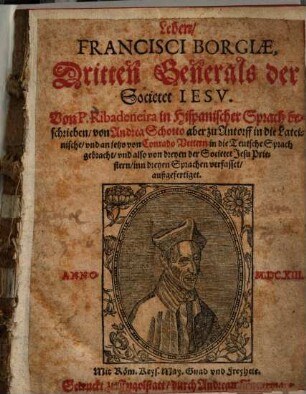 Leben/
FRANCISCI BORGIÆ,
Dritten Generals der
Societet IESV.
Von P. Ribadeneira in Hispanischer Sprach be-
schrieben/ von Andrea Schotto aber zu Antorff in die Latei-
nische/ vnd an jetzo von Conrado Vettern in die Teutsche Sprach
gebracht/ vnd also von dreyen der Societet Jesu Prie-
stern/ inn dreyen Sprachen verfasset/
außgefertiget.
ANNO M.DC.XIII.
Mit Röm. Keys. May. Gnad vnd Freyheit.
Gedruckt zu Ingolstatt/ durch Andream